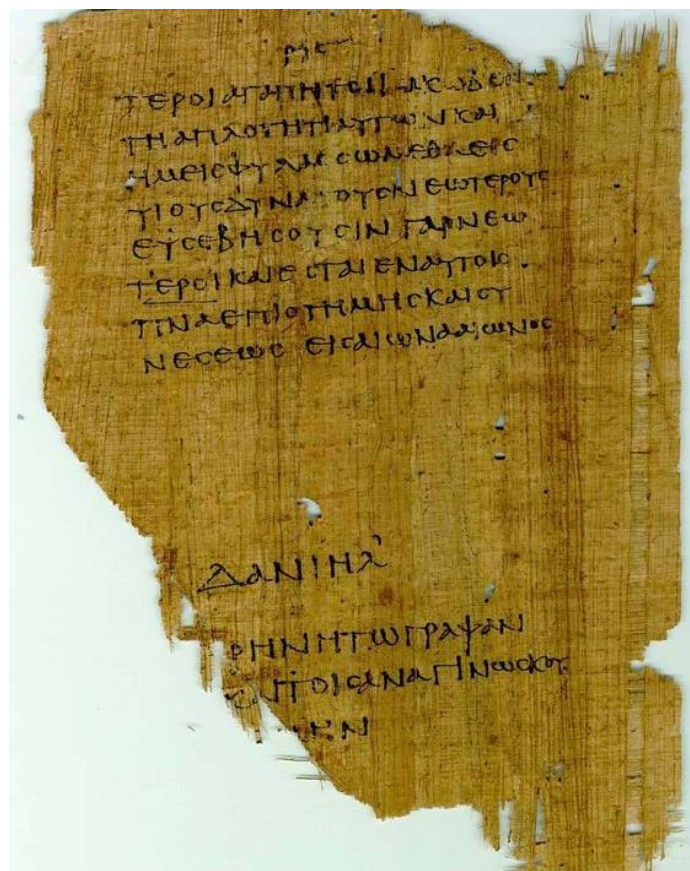 ΤΕΡΟΙΑΓΑΠΗΤΟΙΙΑΚΩΒΕΝ
ΤΗΑΠΛΟΤΗΤΙΑΥΤΩΝΚΑΙ
ΗΜΕΙϹΦΥΛΑϹϹΩΜΕΘΑΕΙϹ
ΥΙΟΥϹΔΥΝΑΤΟΥϹΝΕΩΤΕΡΟΥϹ
ΕΥϹΕΒΗϹΟΥϹΙΝΓΑΡΝΕΩ
ΤΕΡΟΙΚΑΙΕϹΤΑΙΕΝΑΥΤΟΙϹ
ΠΝΑΕΠΙϹΤΗΜΗϹΚΑΙϹΥ
ΝΕϹΕΩϹ ΕΙϹΑΙΩΝΑΑΙΩΝΟϹ
ΔΑΝΙΗΛ
ΡΗΝΗΤΩΓΡΑΨΑΝ
ΤΟΙϹΑΝΑΓΙΝΩϹΚΟΥ